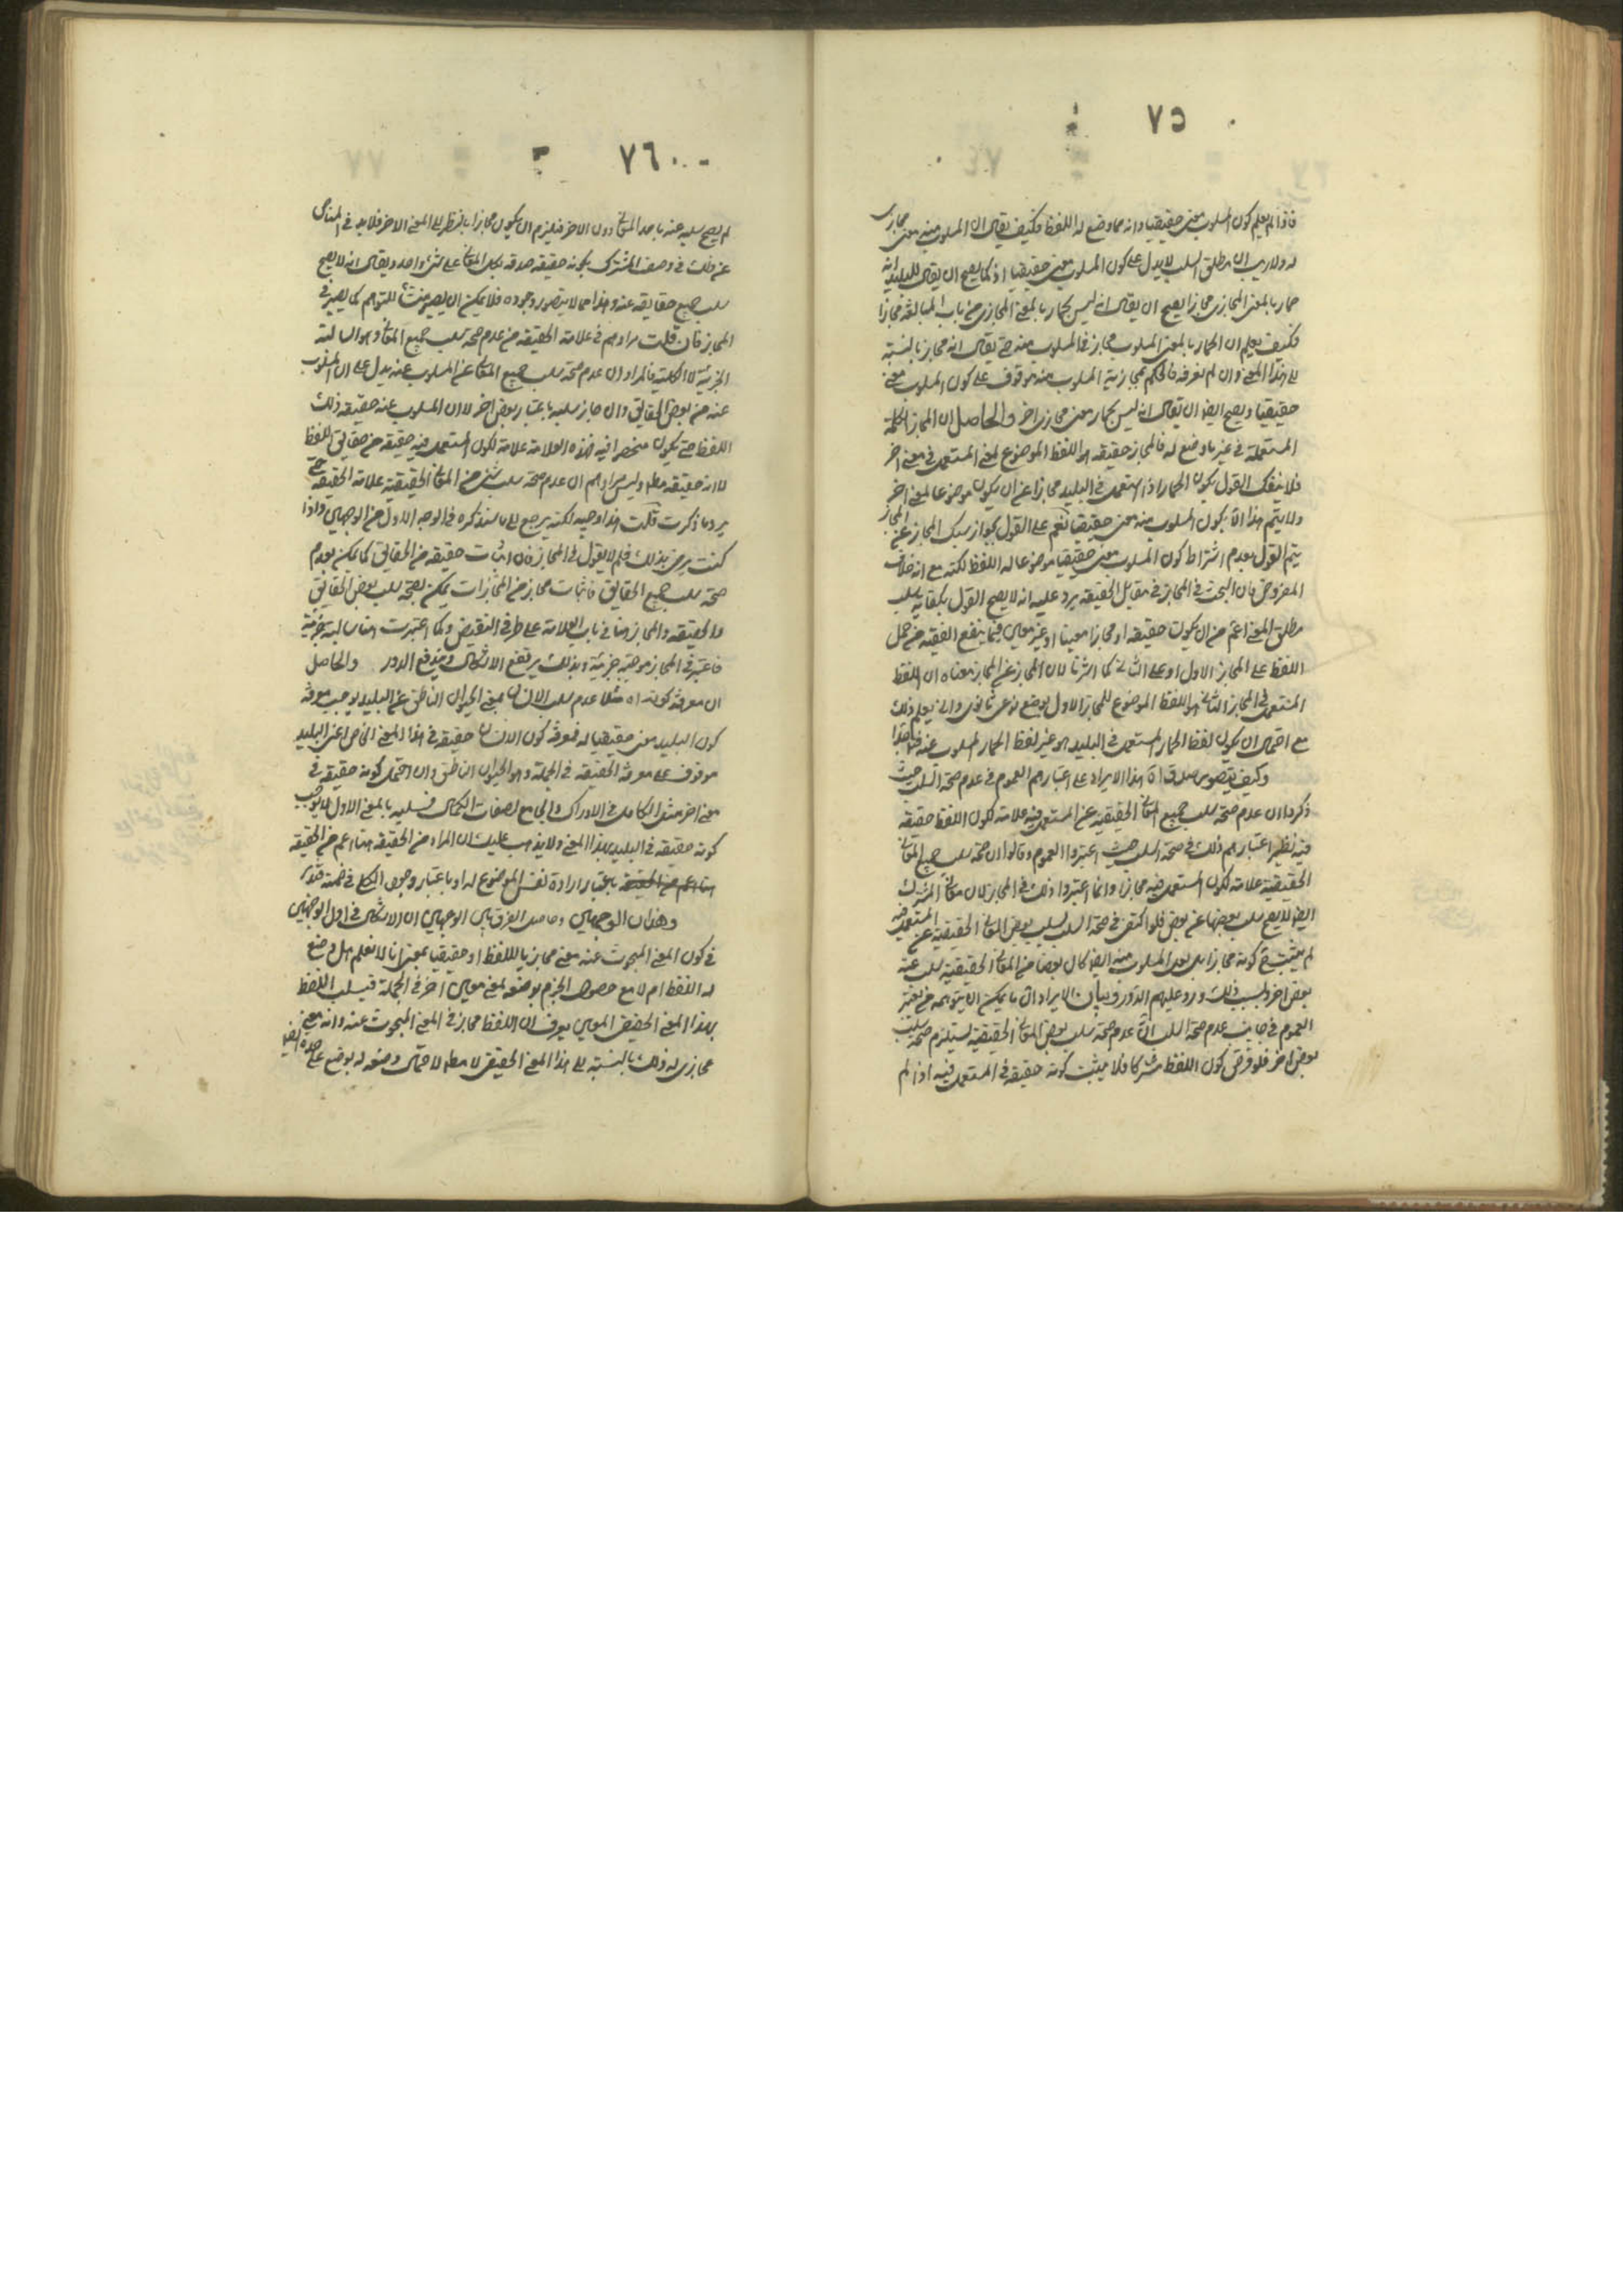 ٧٥
فاذا لم يعلم كون المسلوب معنى حقيقيا وانه مما وضع له اللفظ فكيف يقال ان المسلوب منه معنى مجازى
له ولا ريب ان مطلق السلب لا يدل على كون المسلوب معنى حقيقيا اذ كما يصح ان يقال للبليد انه
حمار بالمعنى المجازى مجازا يصح ان يقال انه ليس بحمار بالمعنى المجازى من باب المبالغة مجازا
فكيف يعلم ان الحمار بالمعنى المسلوب مجاز فى المسلوب منه حتى يقال انه مجاز بالنسبة
الى هذا المعنى وان لم نعرفه فالحكم بمجازية المسلوب منه موقوف على كون المسلوب معنى
حقيقيا ويصح ايضا ان يقال انه ليس بحمار بمعنى مجازى اخر والحاصل ان المجاز الكلمة
المستعملة فى غير ما وضع له فالمجاز حقيقة هو اللفظ الموضوع لمعنى المستعمل فى معنى اخر
فلا ينفك القول بكون الحمار اذا استعمل فى البليد مجازا عن ان يكون موضوعا لمعنى اخر
ولا يتم هذا الا بكون المسلوب منه معنى حقيقيا نعم على القول بجواز سبك المجاز عن المجاز
يتم القول بعدم اشتراط كون المسلوب معنى حقيقيا موضوعا له اللفظ لكنه مع انه خلاف
المفروض فان البحث فى المجاز فى مقابل الحقيقة يرد عليه انه لا يصح القول بكفاية سلب
مطلق المعنى اعم من ان يكون حقيقة او مجازا معينا او غير معين فيما ينفع الفقيه من حمل
اللفظ على المجاز الاول او على الثانى كما اشرنا لان المجاز عن المجاز معناه ان اللفظ
المستعمل فى المجاز الثانى هو اللفظ الموضوع للمجاز الاول بوضع نوعى ثانوى وانى يعلم ذلك
مع احتمال ان يكون لفظ الحمار المستعمل فى البليد هو غير لفظ الحمار المسلوب عنه
وكيف يتصور صدق هذا الايراد على اعتبارهم العموم فى عدم صحة السلب حيث
ذكروا ان عدم صحة سلب جميع المعانى الحقيقية عن المستعمل فيه علامة لكون اللفظ حقيقة
فيه نظير اعتبارهم ذلك فى صحة السلب حيث اعتبروا العموم وقالوا ان صحة سلب جميع المعانى
الحقيقية علامة لكون المستعمل فيه مجازا وانما اعتبروا ذلك فى المجاز لان معانى المشترك
ايضا لا يصح سلب بعضها عن بعض فلو اكتفى فى صحة السلب بسلب بعض المعانى الحقيقية عن المستعمل فيه
لم يثبت كونه مجازا بل لعل المسلوب منه ايضا كان بعضا من المعانى الحقيقية سلب عنه
بعض اخر ولسبب ذلك ورد عليهم الدور وبيان الايراد ان ما يمكن ان يتوهمه من يعتبر
العموم فى جانب عدم صحة السلب ان عدم صحة سلب بعض المعانى الحقيقية يستلزم صحة سلب
بعض اخر فلو فرض كون اللفظ مشتركا فلا يثبت كونه حقيقة فى المستعمل فيه اذا لم
٧٦
لم يصح سلبه عنه باحد المعانى دون الاخر فيلزم ان يكون مجازا بالنظر الى المعنى الاخر فلا بد فى المناص
عن ذلك فى وصف المشترك بكونه حقيقة صدقه بكل المعانى على شئ واحد ويقال انه لا يصح
سلب جميع حقايقه عنه وهذا مما لا يتصور وجوده فلا يمكن ان يصير منشأ للتوهم كما يصير فى
المجاز فان قلت مرادهم فى علامة الحقيقة من عدم صحة سلب جميع المعانى هو السالبة
الجزئية لا الكلية فالمراد ان عدم صحة سلب جميع المعانى عن المسلوب عنه يدل على ان المسلوب
عنه من بعض الحقايق وان جاز سلبه باعتبار بعض اخر لا ان المسلوب عنه حقيقة ذلك
اللفظ حتى يكون منحصرا فيه فهذه العلامة علامة لكون المستعمل فيه حقيقة من حقايق اللفظ
لا انه حقيقة مط وليس مرادهم ان عدم صحة سلب شئ من المعانى الحقيقية علامة الحقيقة حتى
يرد ما ذكرت قلت هذا وجيه لكنه يرجع الى ما سنذكره فى الوجه الاول من الوجهين واذا
كنت ترضى بذلك فلم لا يقول فى المجاز فان اثبات حقيقة من الحقايق كما يمكن بعدم
صحة سلب جميع الحقايق فاثبات مجاز من المجازات يمكن بصحة سلب بعض الحقايق
والحقيقة والمجاز هنا فى باب العلامة على طرفى النقيض وكما اعتبرت هنا سالبة جزئية
فاعتبر فى المجاز موجبة جزئية وبذلك يرتفع الاشكال ويندفع الدور والحاصل
ان معرفة كون عدم سلب الانسان بمعنى الحيوان الناطق عن البليد يوجب معرفة
كون البليد معنى حقيقيا له فمعرفة كون الانسان حقيقة فى هذا المعنى الخاص اعنى البليد
موقوف على معرفة الحقيقة فى الجملة وهو الحيوان الناطق وان احتمل كونه حقيقة فى
معنى اخر مثل الكامل فى الادراك والجامع لصفات الكمال فسلبه بالمعنى الاول لا يوجب
كونه حقيقة فى البليد بهذا المعنى ولا يذهب عليك ان المراد من الحقيقة هنا اعم من الحقيقة
باعتبار ارادة نفس الموضوع له او باعتبار وجود الكلى فى ضمنه فتدبر
وهذان الوجهين وحاصل الفرق بين الوجهين ان الاشكال فى اول الوجهين
فى كون المعنى المبحوث عنه معنى مجازيا لللفظ او حقيقيا بمعنى انا لا نعلم هل وضع
له اللفظ ام لا مع حصول الجزم بوضعه لمعنى معين اخر فى الجملة فبسلب اللفظ
بهذا المعنى الحقيقى المعين يعرف ان اللفظ مجاز فى المعنى المبحوث عنه وانه معنى
مجازى له وذلك بالنسبة الى هذا المعنى الحقيقى لا مط لاحتمال وضعه له بوضع عليحدة ايضا